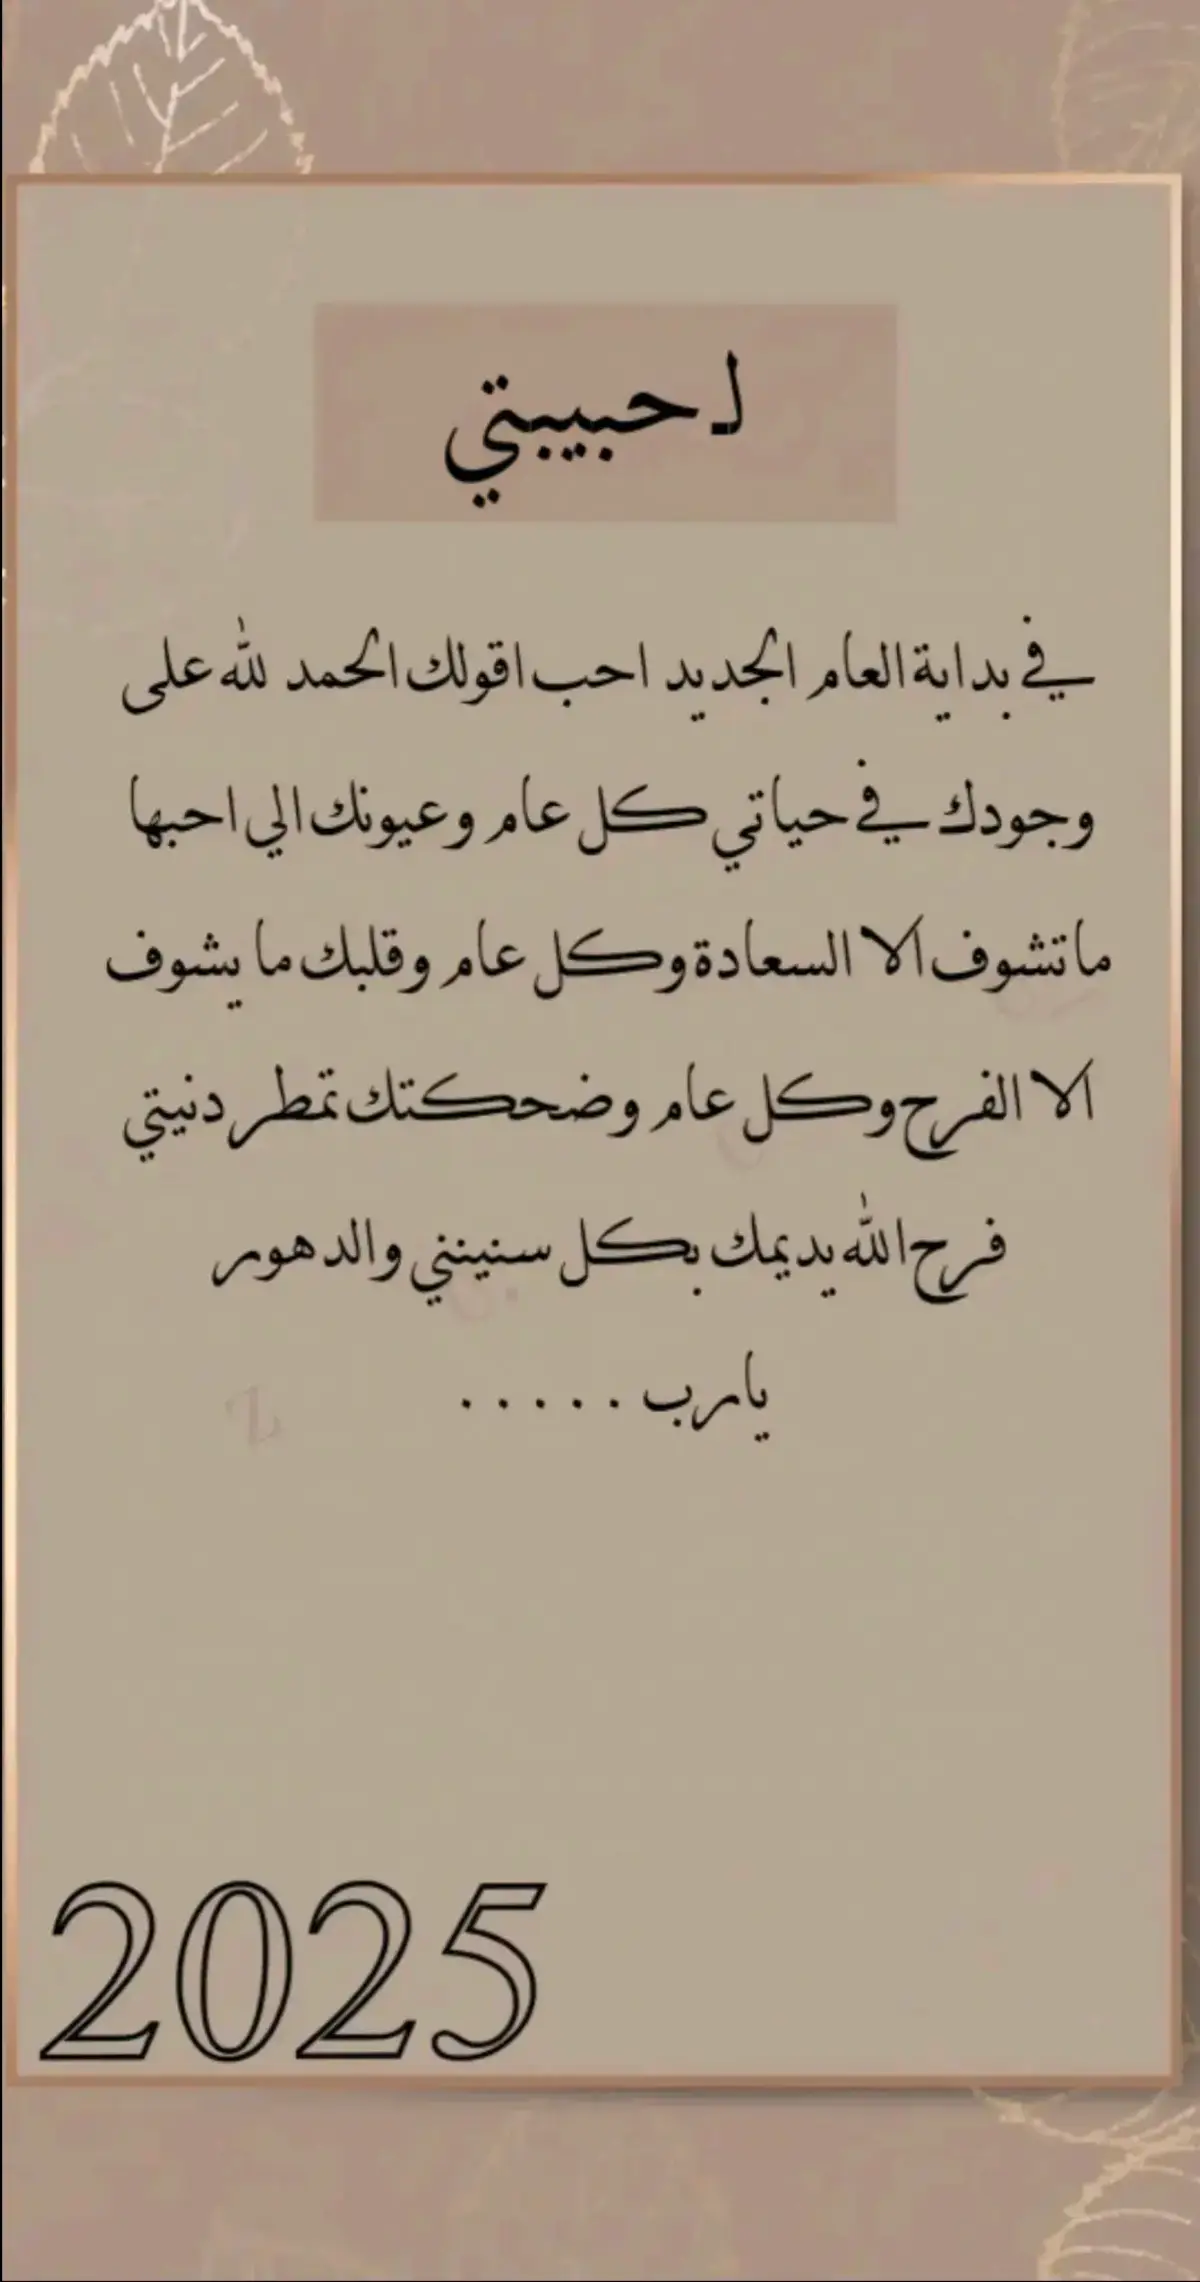 لـ حبيبتي
في بداية العام الجديد احب اقولك الحمد لله على
وجودك في حياتي كل عام وعيونك الي احبها
ماتشوف الا السعادة وكل عام وقلبك ما يشوف
الا الفرح وكل عام وضحكتك تمطر دنيتي
فرح الله يديمك بكل سنينني والدهور
يارب . . . . .
2025